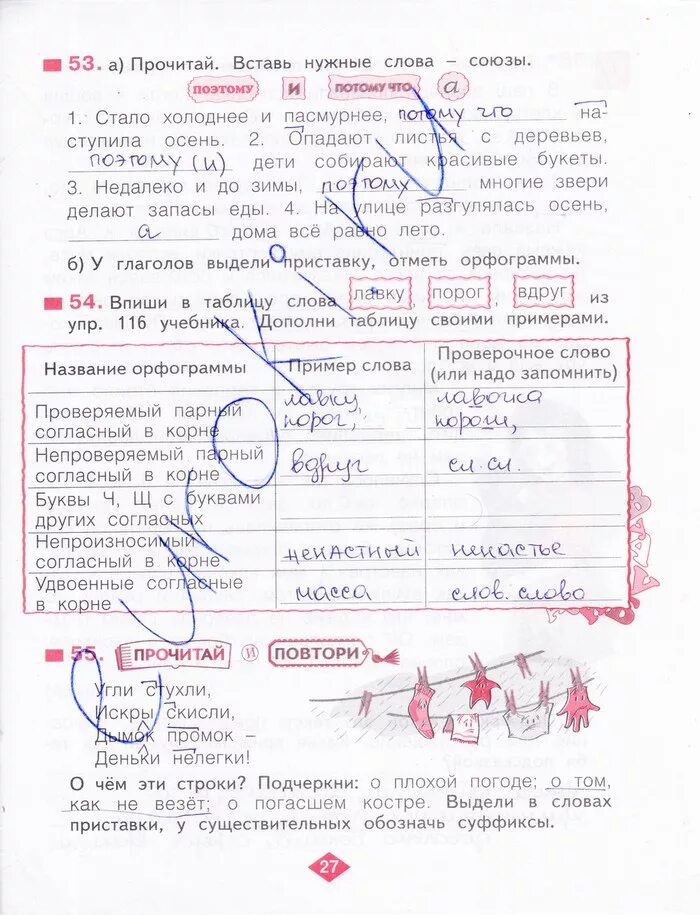 53. а) Прочитай. Вставь нужные слова – союзы.
поэтому и потому что а
1. Стало холоднее и пасмурнее, потому что на-
ступила осень. 2. Опадают листья с деревьев,
поэтому (и) дети собирают красивые букеты.
3. Недалеко и до зимы, поэтому многие звери
делают запасы еды. 4. На улице разгулялась осень,
а дома всё равно лето.
б) У глаголов выдели приставку, отметь орфограммы.
54. Впиши в таблицу слова лавку, порог, вдруг из
упр. 116 учебника. Дополни таблицу своими примерами.
Название орфограммы Пример слова Проверочное слово (или надо запомнить)
Проверяемый парный согласный в корне лавку порог, лавочка пороги,
Непроверяемый парный согласный в корне вдруг сл. сл.
Буквы Ч, Щ с буквами других согласных
Непроизносимый согласный в корне ненастный ненастье
Удвоенные согласные в корне масса слов. слово
55. ПРОЧИТАЙ И ПОВТОРИ
Угли стухли,
Искры скисли,
Дымок промок –
Деньки нелегки!
О чём эти строки? Подчеркни: о плохой погоде; о том,
как не везёт; о погасшем костре. Выдели в словах
приставки, у существительных обозначь суффиксы.
27